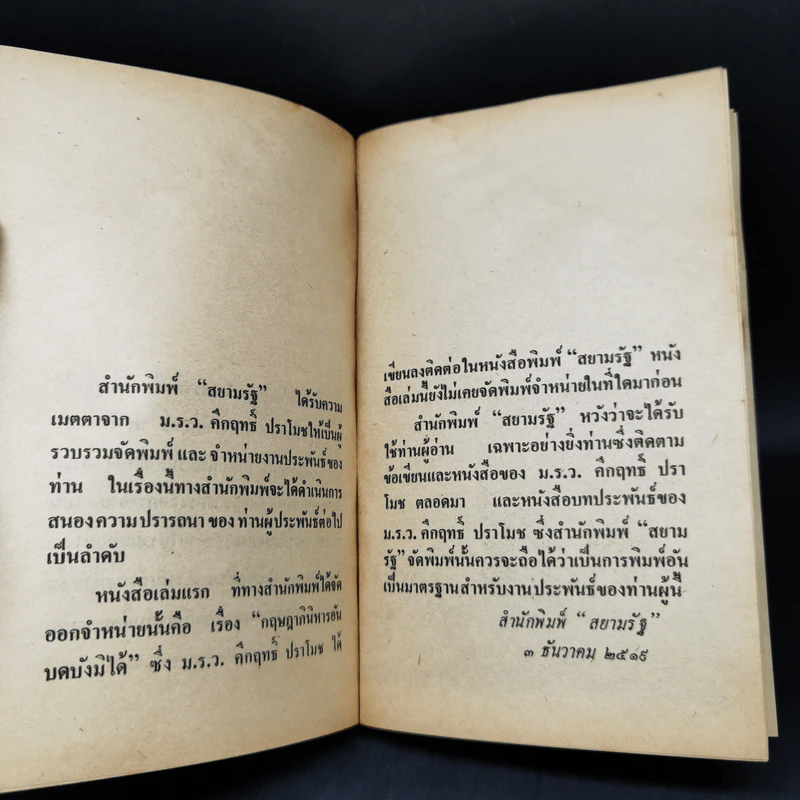 สำนักพิมพ์ “สยามรัฐ” ได้รับความ
เมตตาจาก ม.ร.ว. คึกฤทธิ์ ปราโมชให้เป็นผู้
รวบรวมจัดพิมพ์ และ จำหน่ายงานประพันธ์ของ
ท่าน ในเรื่องนี้ทางสำนักพิมพ์จะได้ดำเนินการ
สนองความปรารถนา ของ ท่านผู้ประพันธ์ต่อไป
เป็นลำดับ
หนังสือเล่มแรก ที่ทางสำนักพิมพ์ได้จัด
ออกจำหน่ายนั้นคือ เรื่อง “กฤษฎาภินิหารอัน
บดบังมิได้” ซึ่ง ม.ร.ว. คึกฤทธิ์ ปราโมช ได้
เขียนลงติดต่อในหนังสือพิมพ์ “สยามรัฐ” หนัง
สือเล่มนี้ยังไม่เคยจัดพิมพ์จำหน่ายในที่ใดมาก่อน
สำนักพิมพ์ “สยามรัฐ” หวังว่าจะได้รับ
ใช้ท่านผู้อ่าน เฉพาะอย่างยิ่งท่านซึ่งติดตาม
ข้อเขียนและหนังสือของ ม.ร.ว. คึกฤทธิ์ ปรา
โมช ตลอดมา และหนังสือบทประพันธ์ของ
ม.ร.ว. คึกฤทธิ์ ปราโมช ซึ่งสำนักพิมพ์ “สยาม
รัฐ”จัดพิมพ์นั้นควรจะถือได้ว่าเป็นการพิมพ์อัน
เป็นมาตรฐานสำหรับงานประพันธ์ของท่านผู้นี้
สำนักพิมพ์ “สยามรัฐ”
๓ ธันวาคม ๒๕๑๙